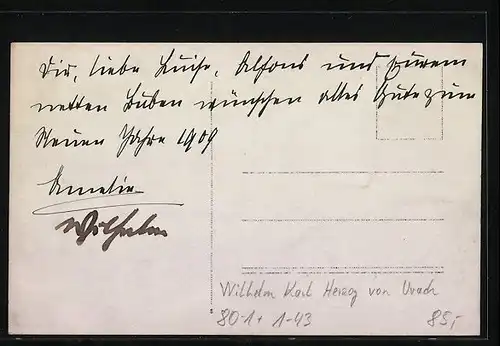 Dir, liebe Luise, Alfons und Eurem
netten Buben wünschen alles Gute zum
Neuen Jahre 1909
Amelie
Wilhelm
Wilhelm Karl Herzog von Urach
80-1+ 1-43 85,-